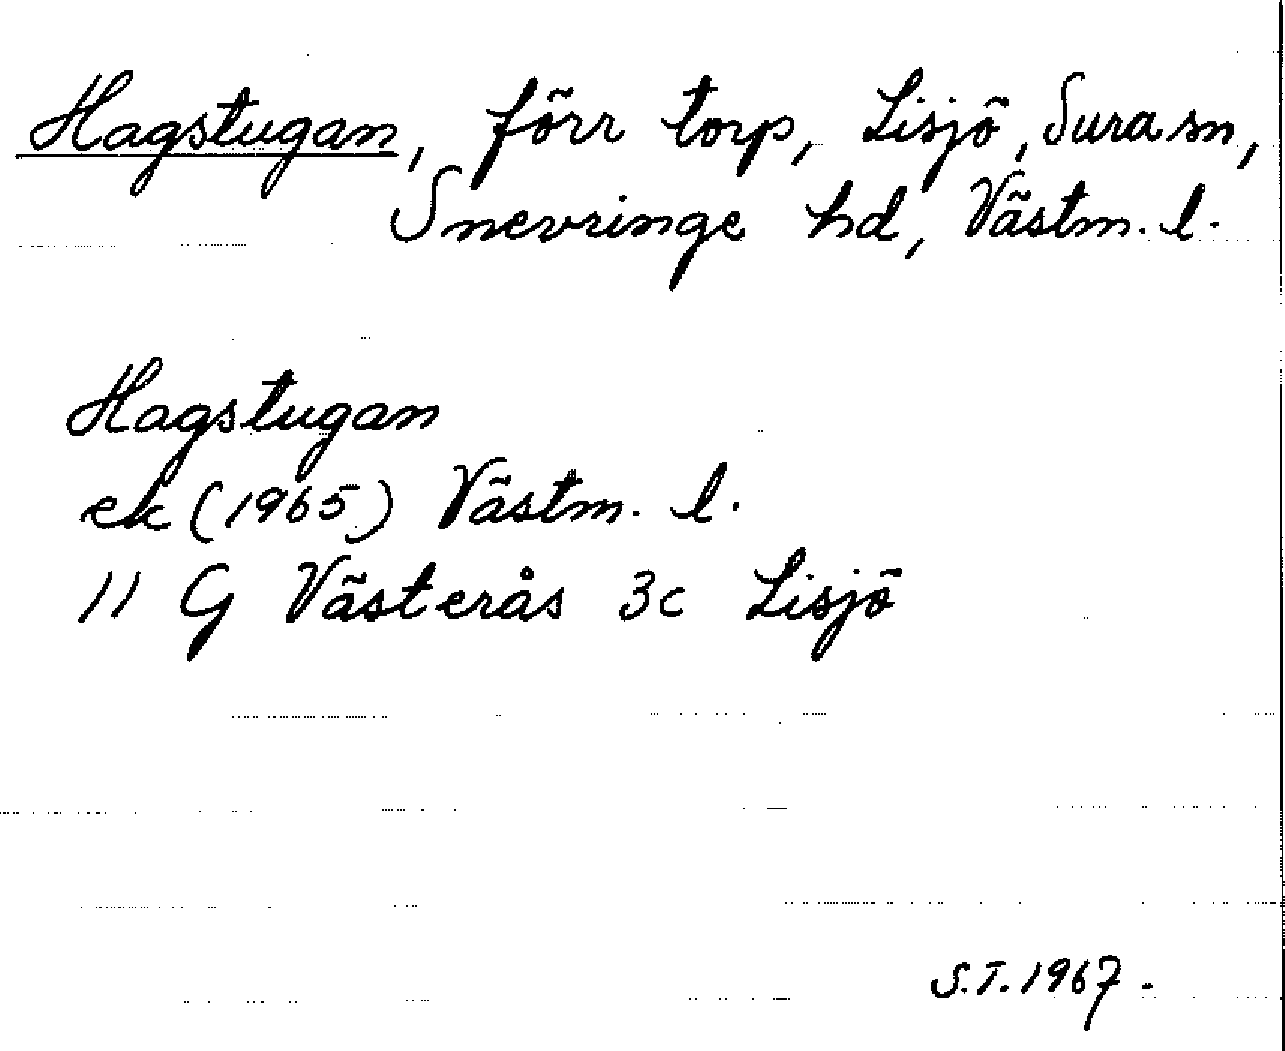 Hagstugan, förr torp, Lisjö, Sura sn,
Snevringe hd, Västm. l.
Hagstugan
ek (1965) Västm. l.
11 G Västerås 3c Lisjö
S.T. 1967.